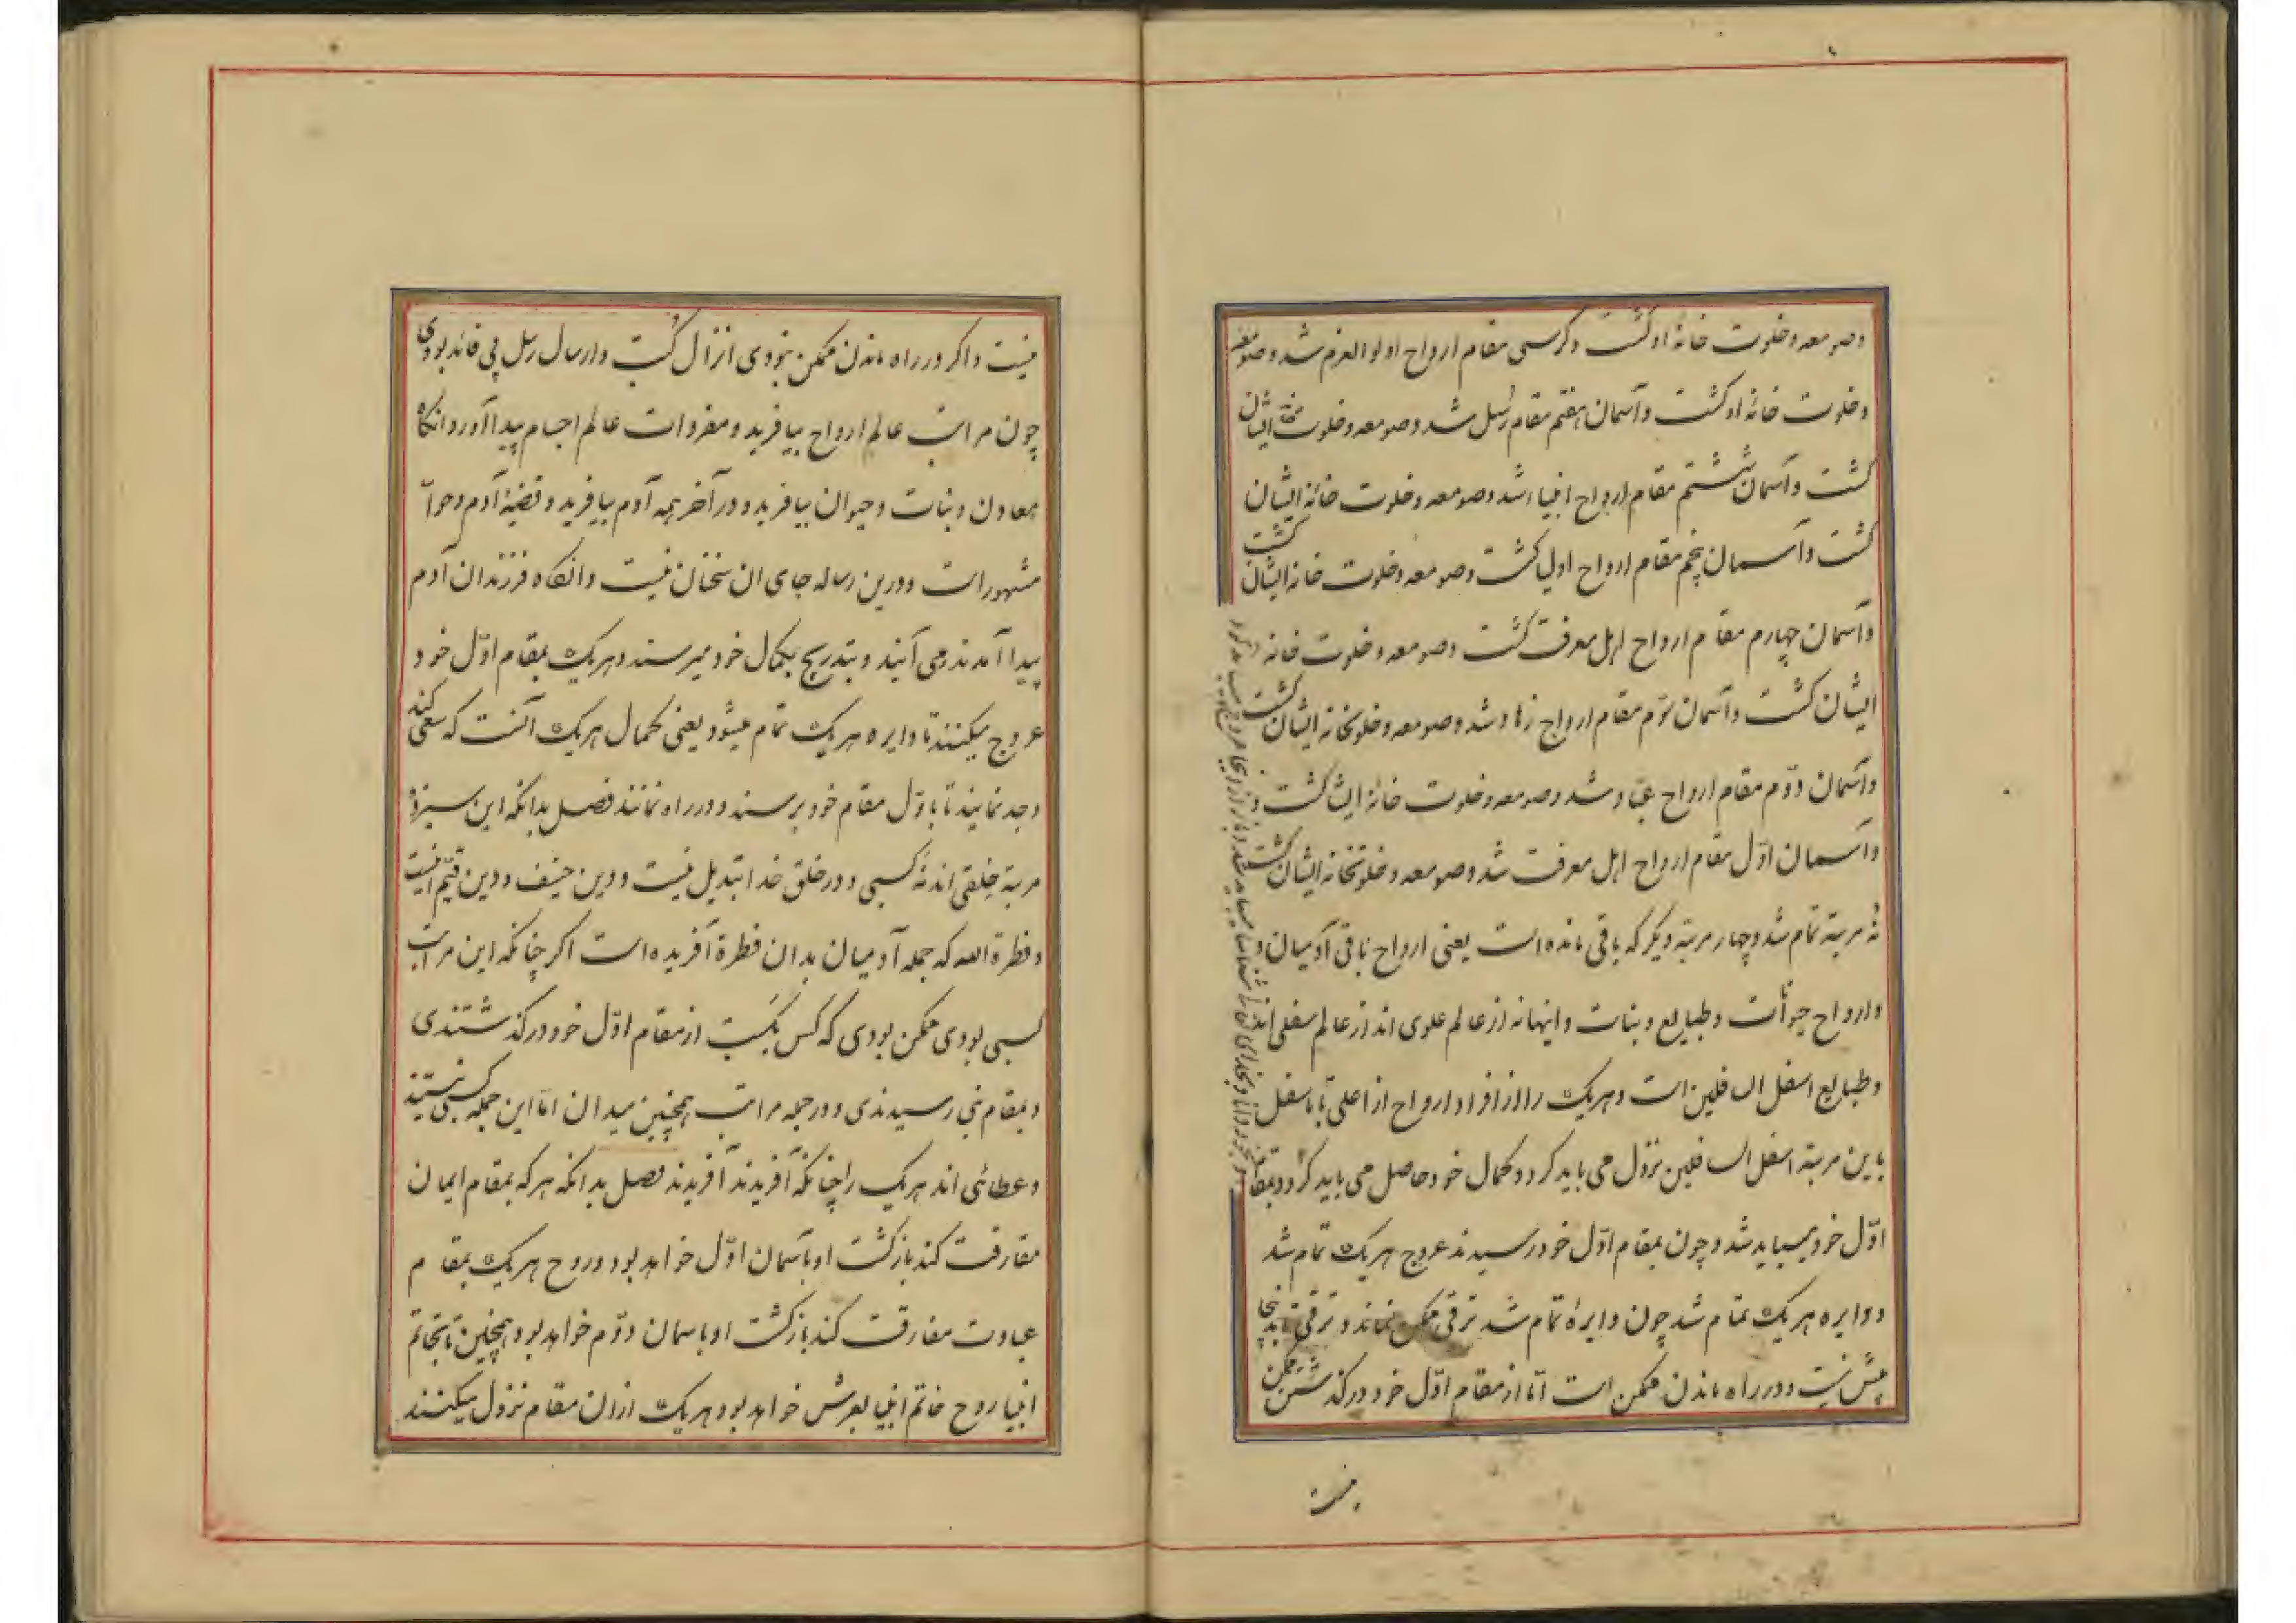 وصومعه و خلوت خانهٔ او کشت و کرسی مقام ارواح اولوالعزم شد و صومعه
و خلوت خانهٔ او کشت و آسمان هفتم مقام رسل شد و صومعه و خلوت خانه ایشان
کشت و آسمان ششم مقام ارواح انبیاء شد و صومعه و خلوت خانهٔ ایشان
کشت و آسمان پنجم مقام ارواح اولی کشت و صومعه و خلوت خانه ایشان کشت
و آسمان چهارم مقام ارواح اهل معرفت کشت و صومعه و خلوت خانه
ایشان کشت و آسمان سوم مقام ارواح زهاد شد و صومعه و خلوتخانه ایشان کشت
و آسمان دوّم مقام ارواح عبّاد شد و صومعه و خلوت خانهٔ ایشا کشت
و آسمان اوّل مقام ارواح اهل معرفت شد و صومعه و خلوتخانه ایشان کشت
نُه مرتبة تمام شد و چهار مرتبة دیکر که باقی مانده است یعنی ارواح باقی آدمیان
و ارواح حیوانات و طبایع و بنات و اینها نه از عالم علوی اند از عالم سفلی اند
و طبایع اسفل السافلین است و هریک را از افراد ارواح از اعلی تا باسفل
باین مرتبة اسفل السافلین نزول می باید کرد و کمال خود حاصل می باید کرد و بمقام
اوّل خود میباید شد و چون بمقام اوّل خود رسیدند عروج هریک تمام شد
و دایره هریک تمام شد چون دایرهٔ تمام شد ترقی ممکن نماند و ترقی
پیش نیست و در راه ماندن ممکن است امّا از مقام اوّل خود درکذشتن ممکن
نیست
نیست و اکر در راه ماندن ممکن نبودی انزال کتب و ارسال رسل بی فائده بودی
چون مراتب عالم ارواح بیافرید و مفردات عالم اجسام پیدا آورد و انکاه
معادن و بنات و حیوان بیافرید و در آخر همه آدم بیافرید و قضیهٔ آدم و حوّا
مشهور است و درین رساله جای ان سخنان نیست و انکاه فرزندان آدم
پیدا آمدند و می آیند و بتدریج بکمال خود میرسند و هریک بمقام اوّل خود
عروج میکنند تا دایره هریک تمام میشود یعنی کمال هریک آنست که سعی کند
و جد نمایند تا باوّل مقام خود برسند و در راه نمانند فصل بدانکه این سیزده
مرتبة خلقی اند نه کسبی و در خلق خدا تبدیل نیست و دین حنیف و دین قیّم اینست
و فطرة الله که جمله آدمیان بدان فطرة آفریده است اکر چنانکه این مراتب
کسبی بودی ممکن بودی که کس بکسب از مقام اوّل خود درکذشتندی
و بمقام نبی رسیدندی و در جمله مراتب همچنین میدان امّا این جمله کسبی نیستند
و عطائی اند هریک را چنانکه آفریدند آفریدند فصل بدانکه هرکه بمقام ایمان
مفارقت کند بازکشت او بآسمان اوّل خواهد بود و روح هریک بمقام
عبادت مفارقت کند بازکشت او باسمان دوّم خواهد بود و همچنین تا بخاتم
انبیا روح خاتم انبیا بعرش خواهد بود هریک ازان مقام نزول میکنند